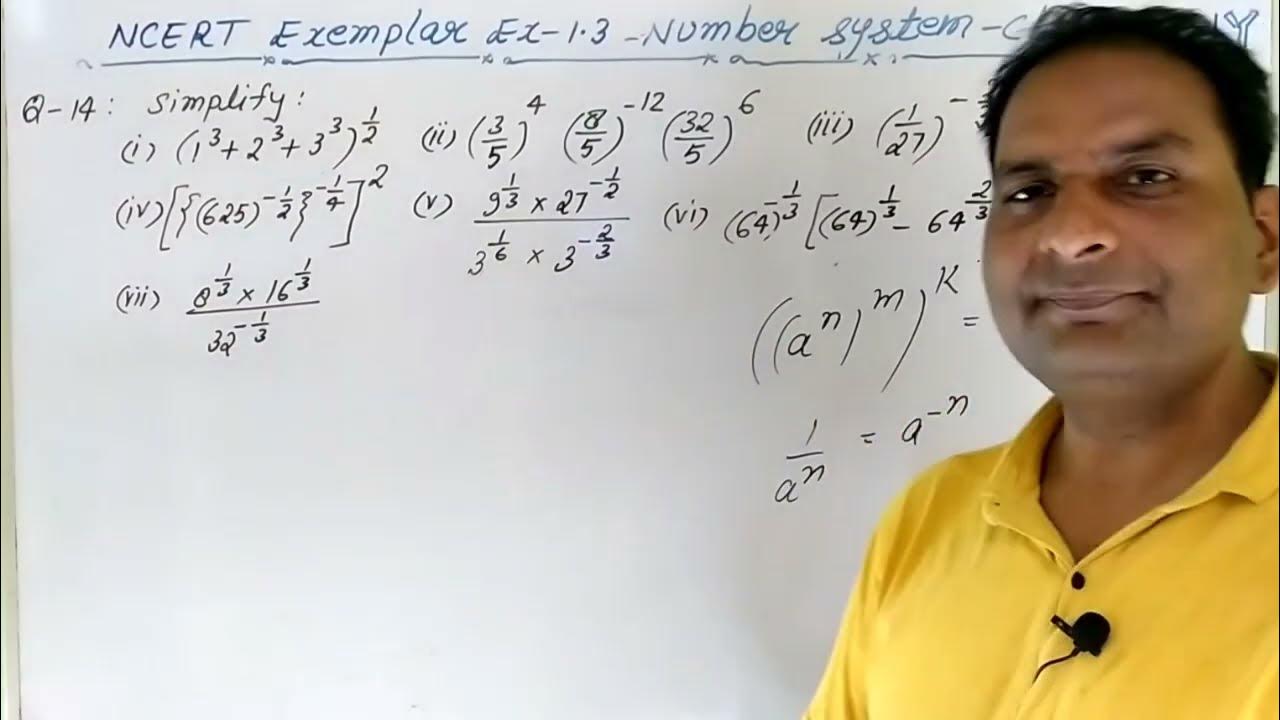 NCERT Exemplar Ex-1.3 - Number system -
Q-14: Simplify:
(i) (1³+2³+3³)^(1/2) (ii) (3/5)^4 (8/5)^-12 (32/5)^6 (iii) (1/27)^-
(iv) [{(625)^(-1/2)}^(-1/4)]^2 (v) (9^(1/3) × 27^(-1/2))/(3^(1/6) × 3^(-2/3)) (vi) (64)^(-1/3) [(64)^(1/3) - 64^(2/3)
(vii) (8^(1/3) × 16^(1/3))/(32^(-1/3))
((a^n)^m)^K =
1/a^n = a^-n